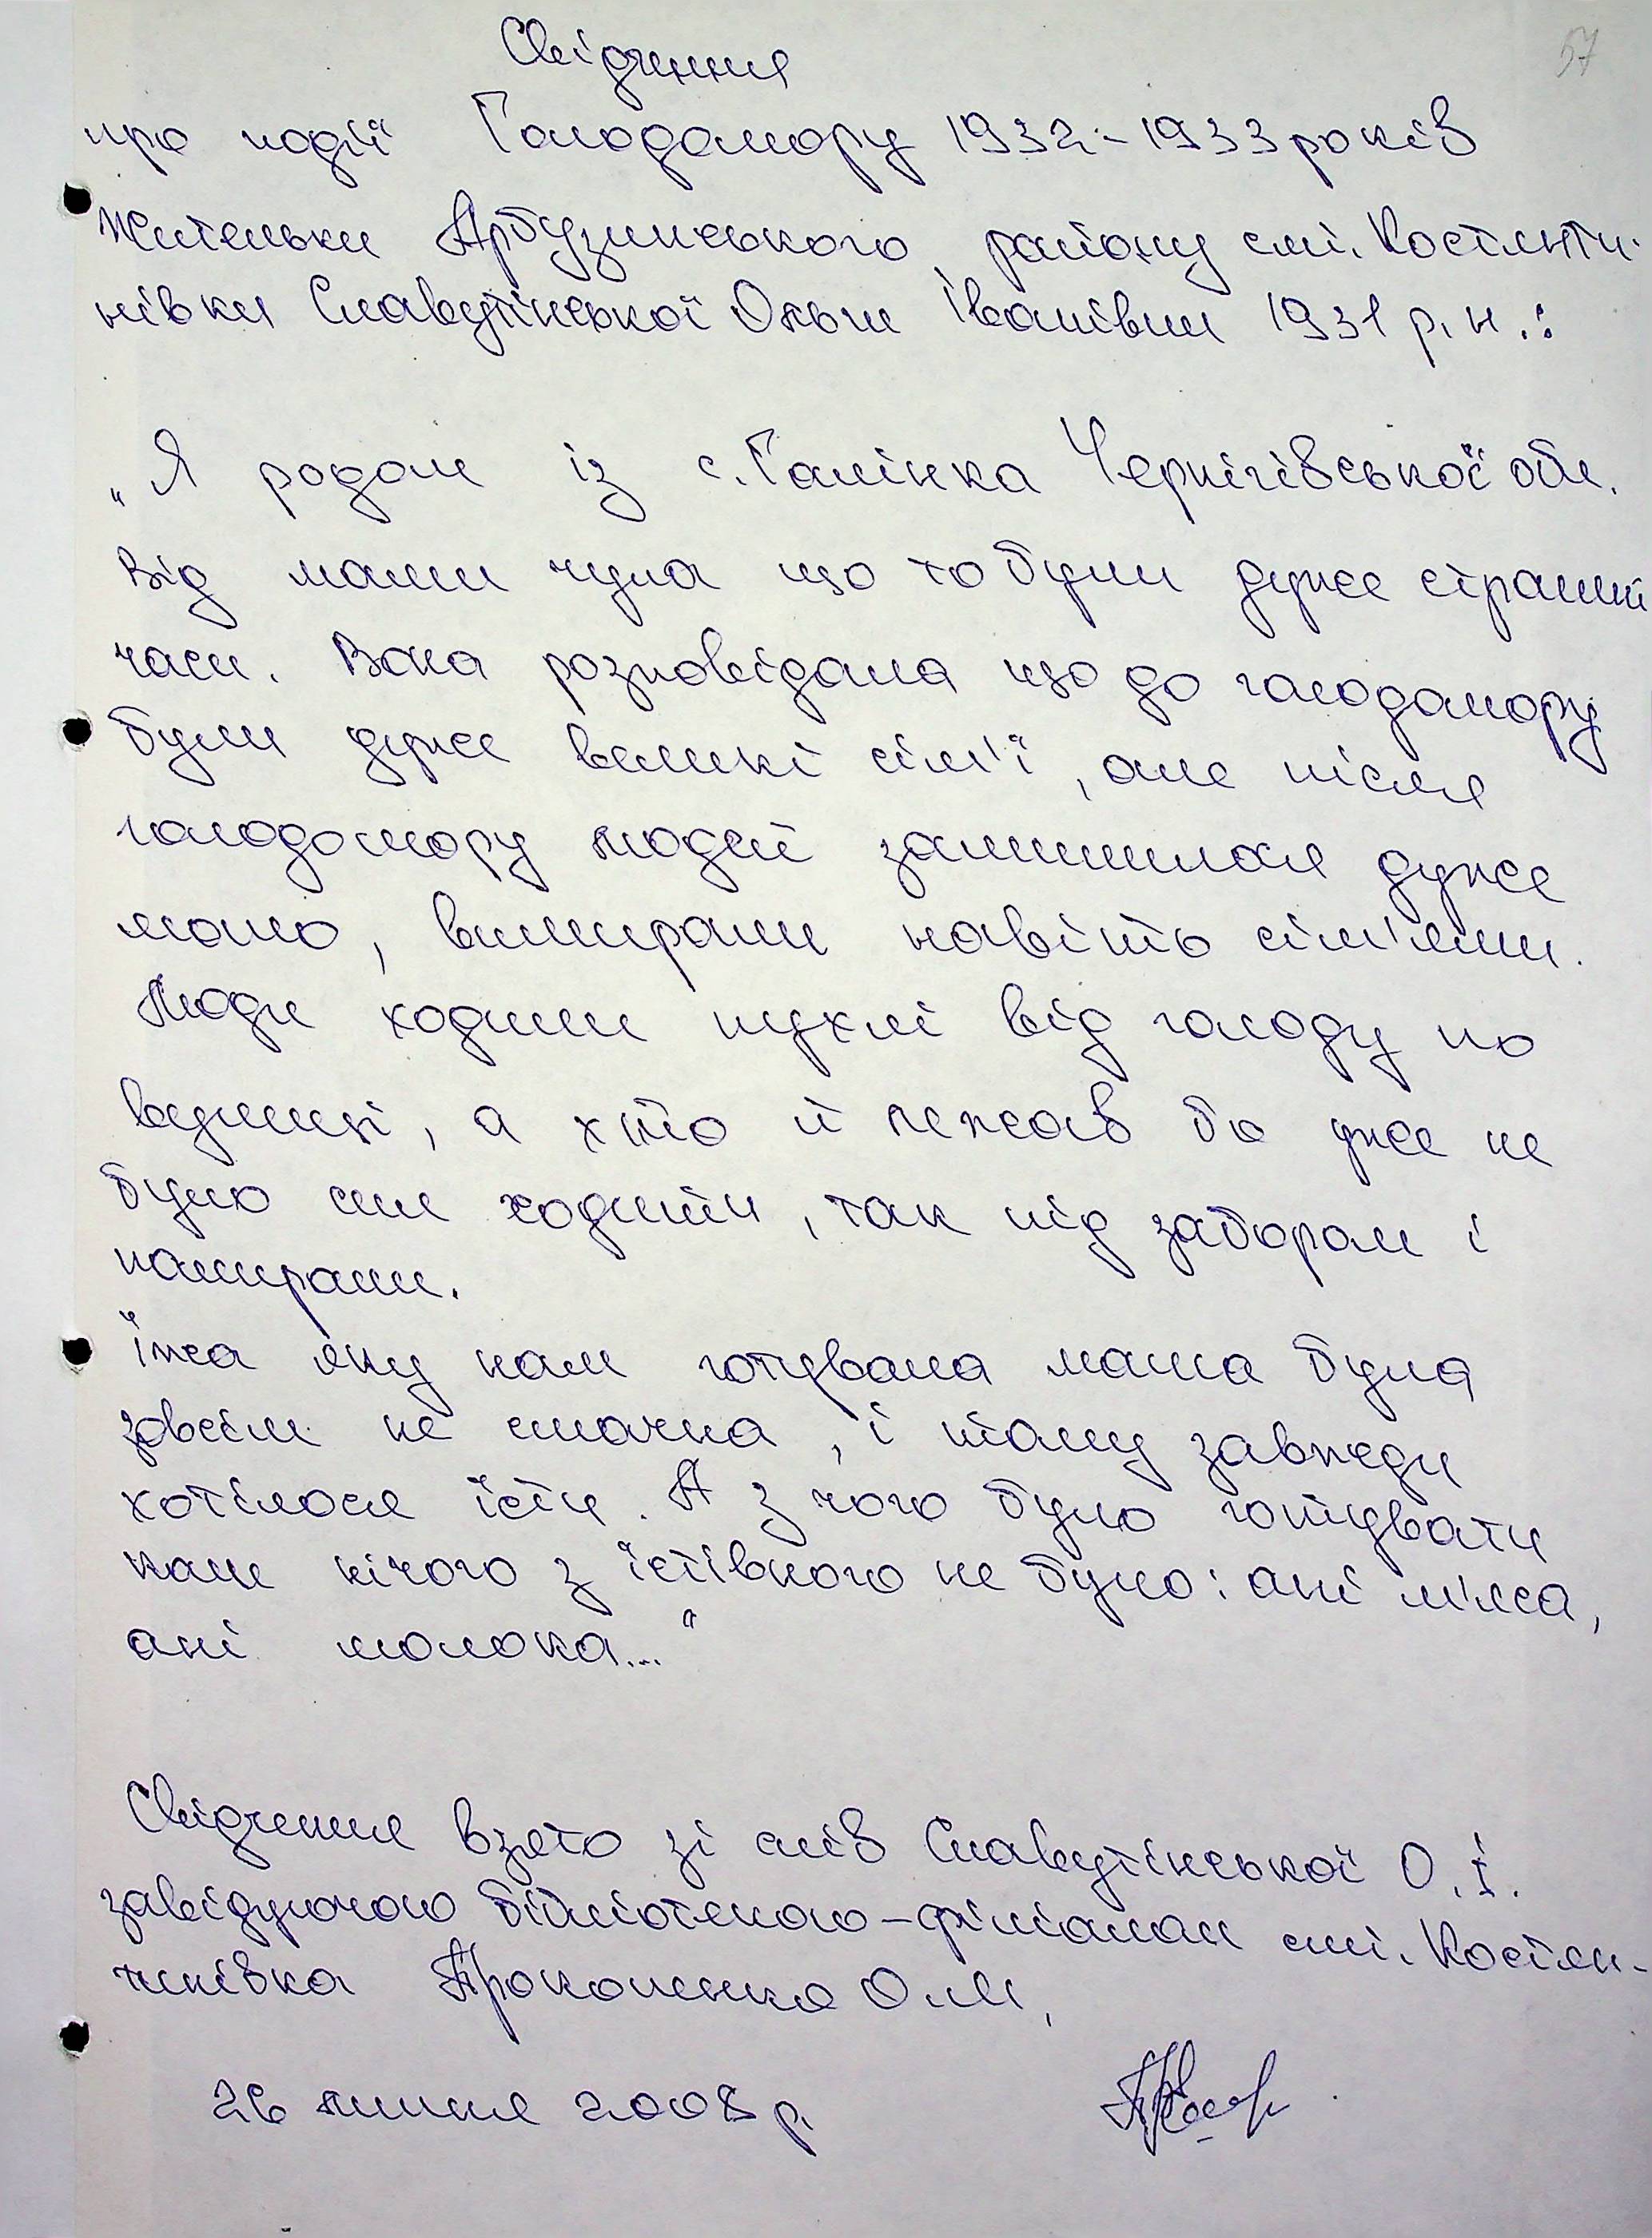 57
Свідчення
про події Голодомору 1932-1933 років
жительки Арбузинського району смт. Костянти-
нівки Славутінської Ольги Іванівни 1931 р.н.:
„Я родом із с. Галінка Чернігівської обл.
Від мами чула що то були дуже страшні
часи. Вона розповідала що до голодомору
були дуже великі сім'ї, але після
голодомору людей залишилося дуже
мало, вимирали навіть сім'ями.
Люди ходили пухлі від голоду по
вулиці, а хто й лежав бо уже не
було сил ходити, так під забором і
помирали.
Їжа яку нам готувала мама була
зовсім не смачна, і тому завжди
хотілося їсти. А з чого було готувати
коли нічого з їстівного не було: ані м'яса,
ані молока..."
Свідчення взято зі слів Славутінської О.І.
завідуючою бібліотекою-філіалом смт. Костян-
тинівка Прокопенко О.М.
26 липня 2008 р.